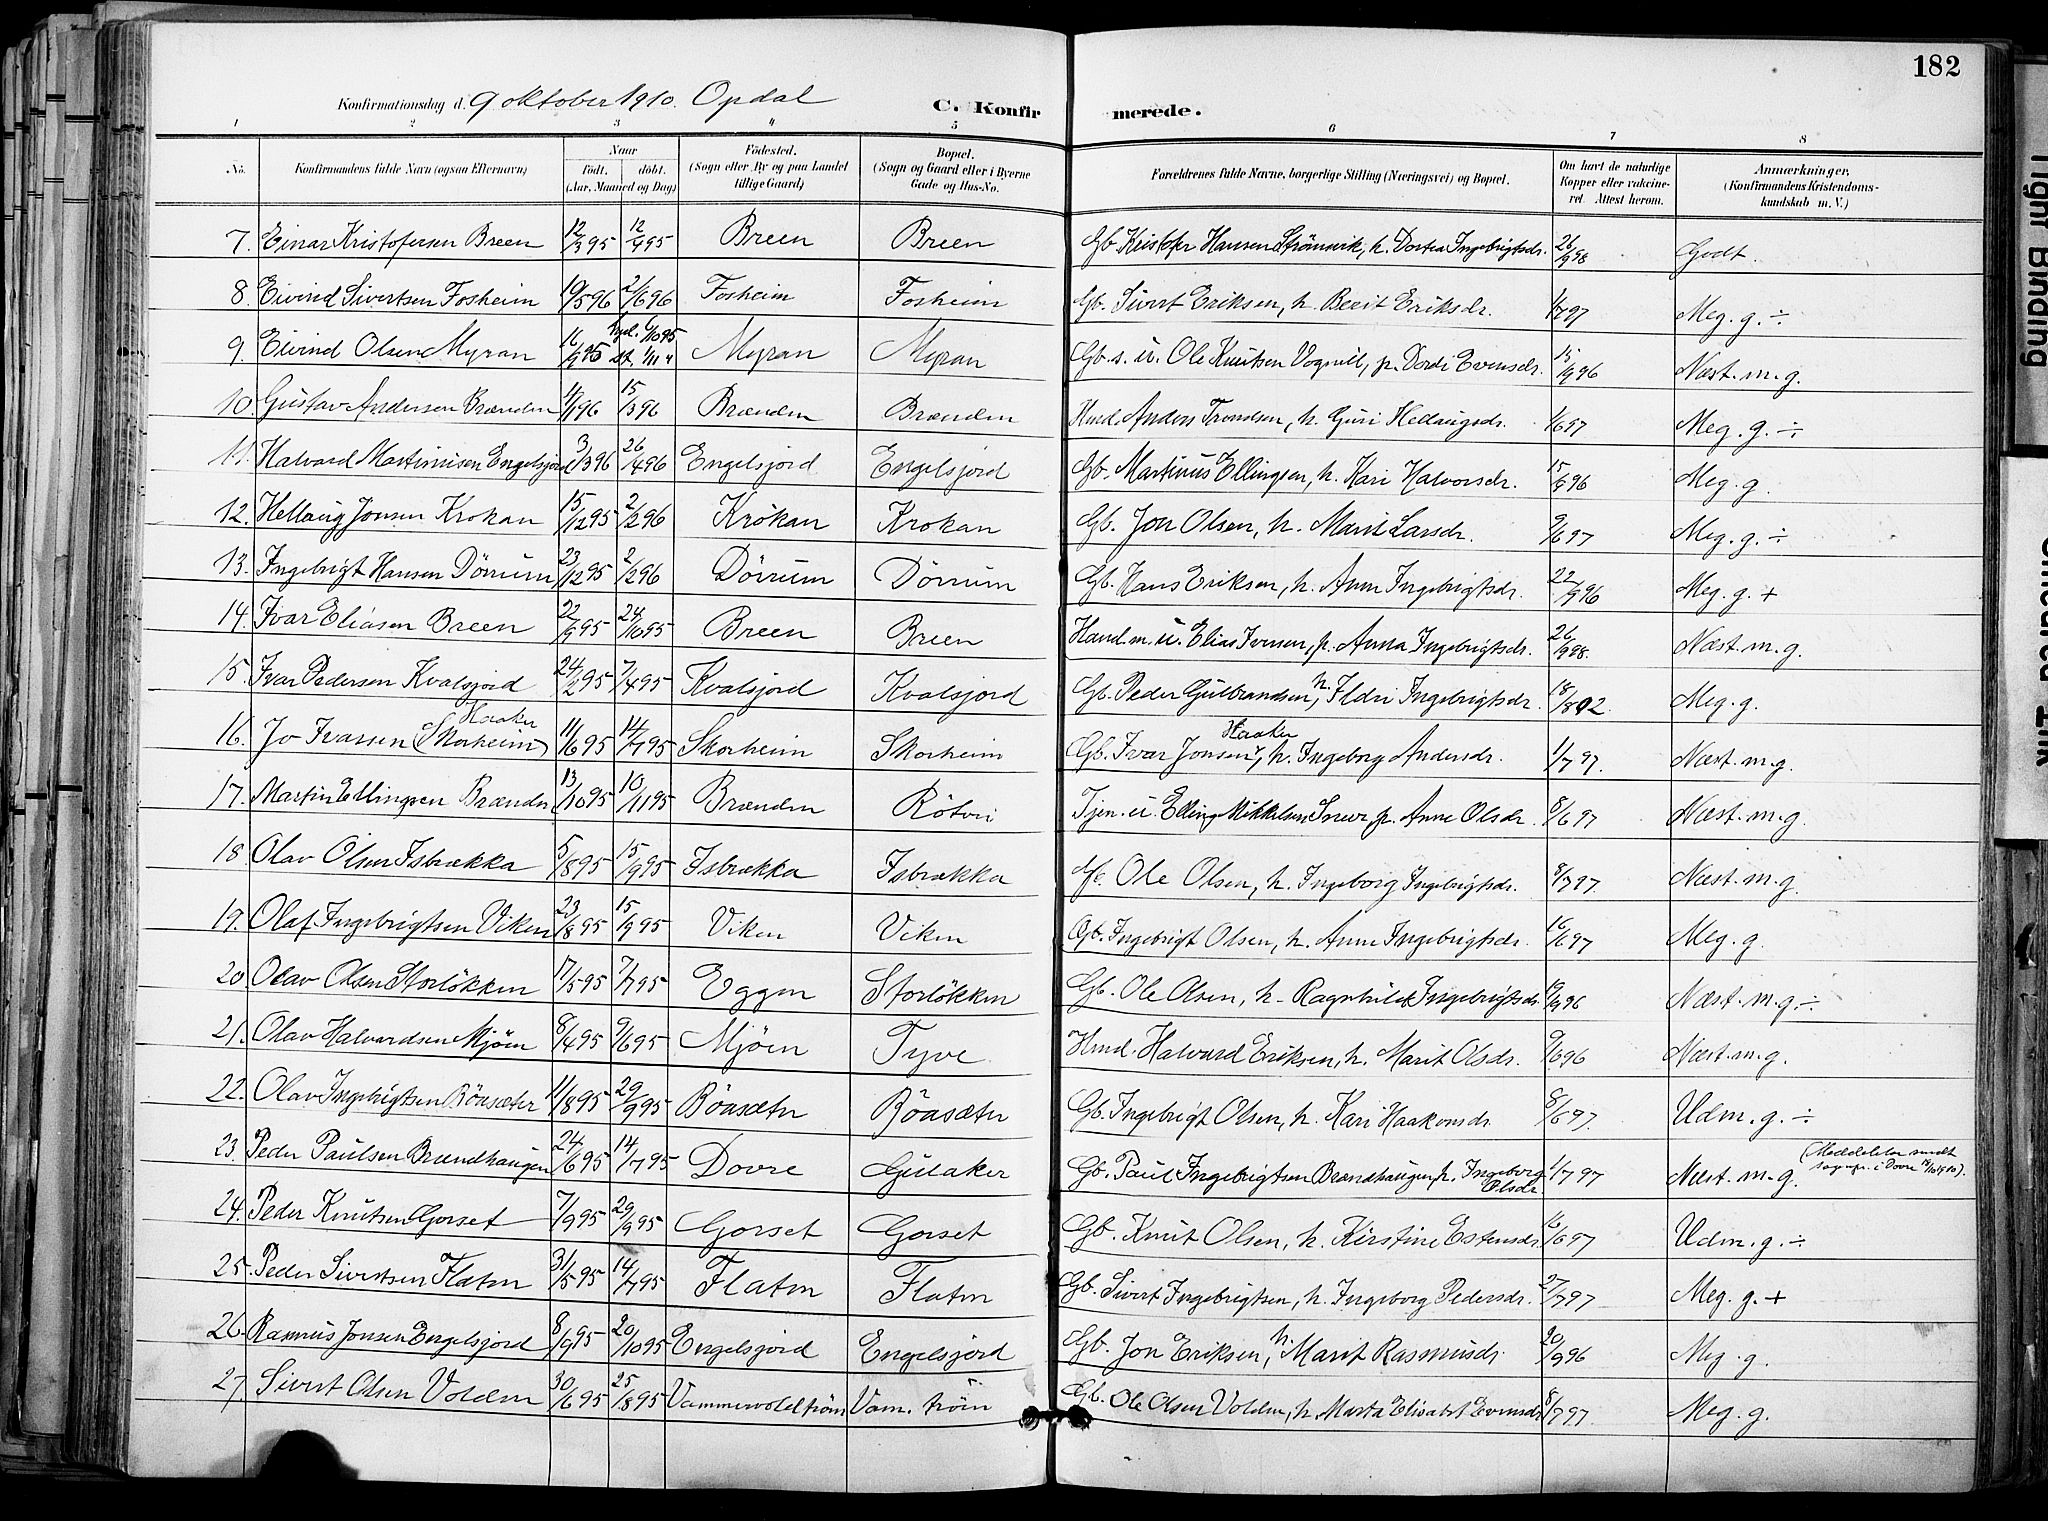 182
Konfirmationsdag d. 9 oktober 1910. Opdal C. Konfirmerede.
1 2 3 4 5 6 7 8
No. Konfirmandens fulde Navn (ogsaa Efternavn) Naar Født. døbt. (Aar, Maaned og Dag) Fødested. (Sogn eller By og paa Landet tillige Gaard) Bopæl. (Sogn og Gaard eller i Byerne Gade og Hus-No. Forældrenes fulde Navne, borgerlige Stilling (Næringsvei) og Bopæl. Om havt de naturlige Kopper eller vakcineret. Attest herom. Anmærkninger. (Konfirmandens Kristendomskundskab m. V.)
7. Einar Kristofersen Breen 12/3 95 12/4 95 Breen Breen Gb. Kristofer Hansen Strømsvik, h. Dortea Ingebrigtsdr. 26/9 98 Godt.
8. Eivind Sivertsen Fosheim 19/5 96 2/6 96 Fosheim Fosheim Gb. Sivert Eriksen, h. Berit Eriksdr. 1/7 97 Meg. g. ÷
9. Eivind Olsen Myran 16/9 95 Myran Myran Gb. s. u. Ole Knutsen Vognill, p. Dordi Evensdr. 15/9 96 Næst. m. g.
10. Gustav Andersen Brænden 4/1 96 15/3 96 Brænden Brænden Husd. Anders Trondsen, h. Guri Hellaugsdr. 1/6 97 Meg. g. ÷
11. Halvard Martinusen Engelsjord 3/3 96 26/4 96 Engelsjord Engelsjord Gb. Martinus Ellingsen, h. Kari Halvorsdr. 15/9 96 Meg. g.
12. Hellaug Jonsen Krokan 15/12 95 2/2 96 Krokan Krokan Gb. Jon Olsen, h. Marit Larsdr. 9/6 97 Meg. g. ÷
13. Ingebrigt Hansen Dørrum 23/12 95 2/2 96 Dørrum Dørrum Gb. Hans Eriksen, h. Anne Ingebrigtsdr. 22/9 96 Meg. g. +
14. Ivar Eliasen Breen 22/9 95 24/10 95 Breen Breen Hand. m. u. Elias Iversen, p. Anna Ingebrigtsdr. 26/9 98. Næst. m. g.
15. Ivar Pedersen Kvalsjord 24/2 95 7/4 95 Kvalsjord Kvalsjord Gb. Peder Gulbrandsen, h. Ildri Ingebrigtsdr. 18/8 02. Meg. g.
16. Jo Ivarsen Haaker (Skorheim) 11/6 95 14/7 95 Skorheim Skorheim Gb. Ivar Jonsen Haaker, h. Ingeborg Andersdr. 1/7 97. Næst. m. g.
17. Martin Ellingsen Brænden 13/10 95 10/11 95 Brænden Rötvi Tjen. u. Elling Mikkelsen Snuve, p. Anne Olsdr. 8/6 97 Næst. m. g.
18 Olav Olsen Isbrekka 5/8 95 15/9 95 Isbrekka Isbrekka Ole Olsen, h. Ingeborg Ingebrigtsdr. 8/7 97. Næst. m. g.
19. Olaf Ingebrigtsen Viken 23/8 95 15/9 95 Viken Viken Gb. Ingebrigt Olsen, h. Anne Ingebrigtsdr. 16/6 97 Meg. g.
20 Olav Olsen Storløkken 17/5 95 7/7 95 Eggen Storløkken Gb. Ole Olsen, h. Ragnhild Ingebrigtsdr. 9/9 96 Næst. m. g. ÷
21. Olav Halvardsen Mjøen 8/4 95 9/6 95 Mjøen Tyve Hmd. Halvard Eriksen, h. Marit Olsdr. 9/6 96 Næst. m. g.
22. Olav Ingebrigtsen Böasæter 11/8 95 29/9 95 Böasæter Böasæter Gb. Ingebrigt Olsen, h. Kari Haakonsdr. 8/6 97. Udm. g. ÷
23. Peder Paulsen Brændhaugen 24/6 95 14/7 95 Dovre Gulaker Gb. Paul Ingebrigtsen Brændhaugen, h. Ingeborg Olsdr. 1/7 97 Næst. m. g. (Meddelelse sendt sognepr. i Dovre 14/10 1910).
24. Peder Knutsen Gorset 7/9 95 29/9 95 Gorset Gorset Gb. Knut Olsen, h. Kirstine Estensdr. 16/6 97 Udm. g. ÷
25. Peder Sivertsen Flaten 31/5 95 14/7 95 Flaten Flaten Gb. Sivert Ingebrigtsen, h. Ingeborg Pedersdr. 27/7 97 Meg. g. +
26. Rasmus Jonsen Engelsjord 8/9 95 20/10 95 Engelsjord Engelsjord Gb. Jon Eriksen, h. Marit Rasmusdr. 20/9 96 Meg. g.
27. Sivert Olsen Volden 30/6 95 25/8 95 Vammervoldtröen Vam. tröen Gb. Ole Olsen Volden, h. Marta Elisabet Evensdr. 8/7 97 Meg. g.
Tight Binding